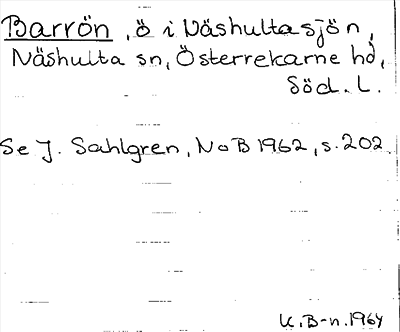 Barrön, ö i Näshultasjön,
Näshulta sn, Österrekarne hd,
Söd. L.
Se J. Sahlgren, NoB 1962, s. 202
K. B-n. 1964